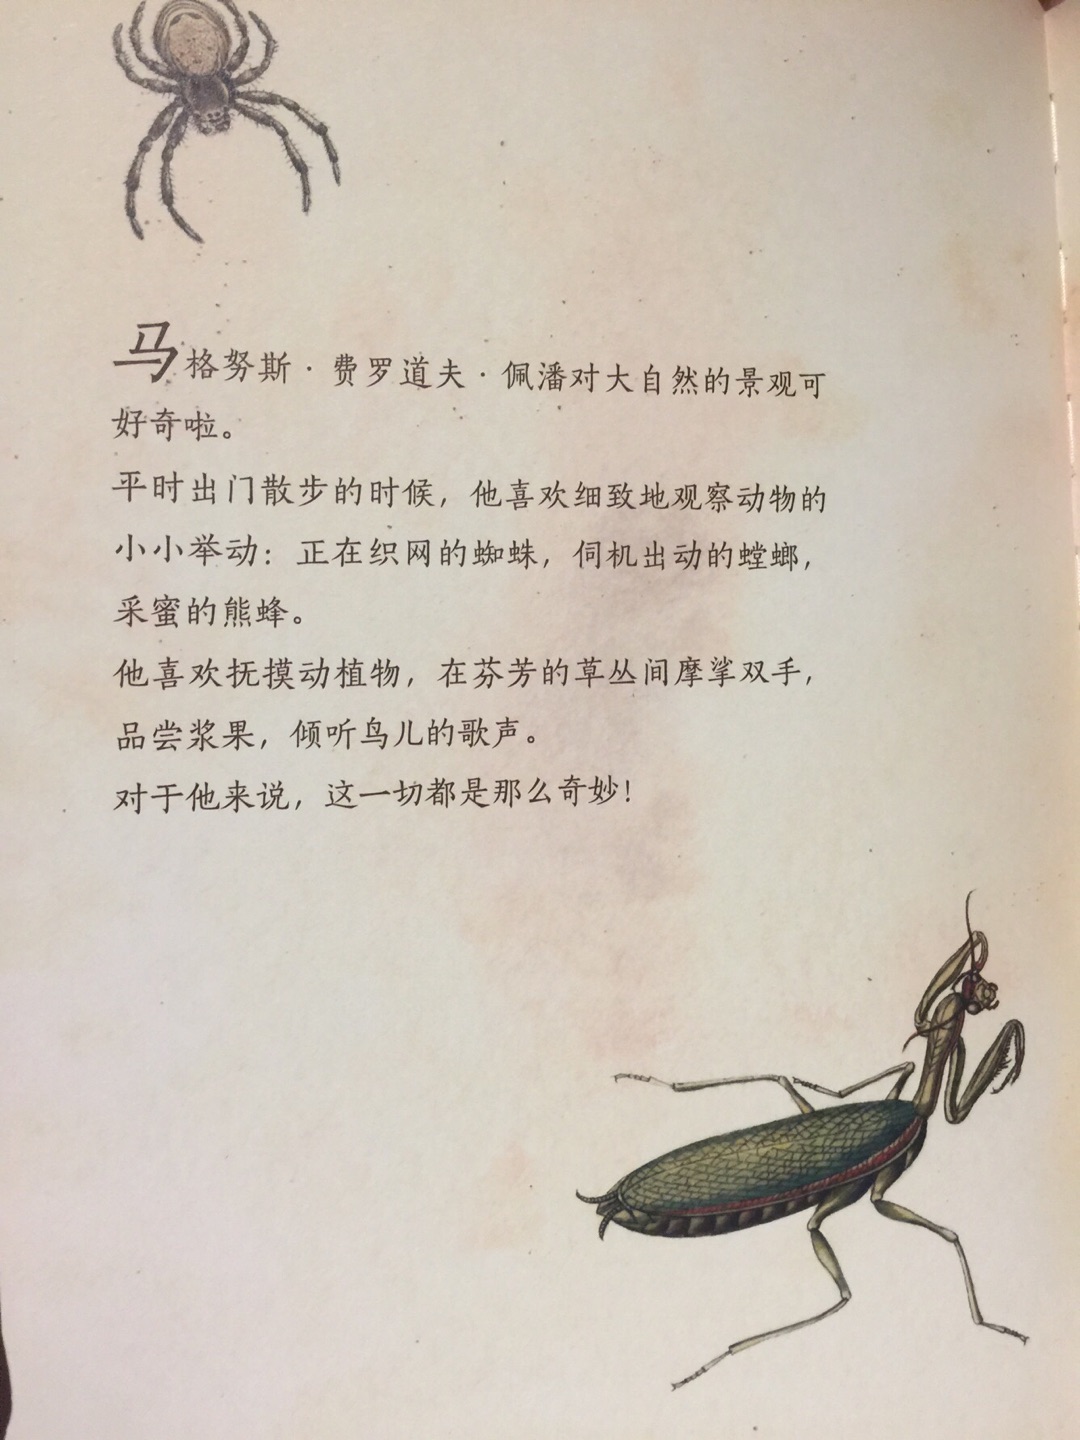 马格努斯·费罗道夫·佩潘对大自然的景观可
好奇啦。
平时出门散步的时候，他喜欢细致地观察动物的
小小举动：正在织网的蜘蛛，伺机出动的螳螂，
采蜜的熊蜂。
他喜欢抚摸动植物，在芬芳的草丛间摩挲双手，
品尝浆果，倾听鸟儿的歌声。
对于他来说，这一切都是那么奇妙！